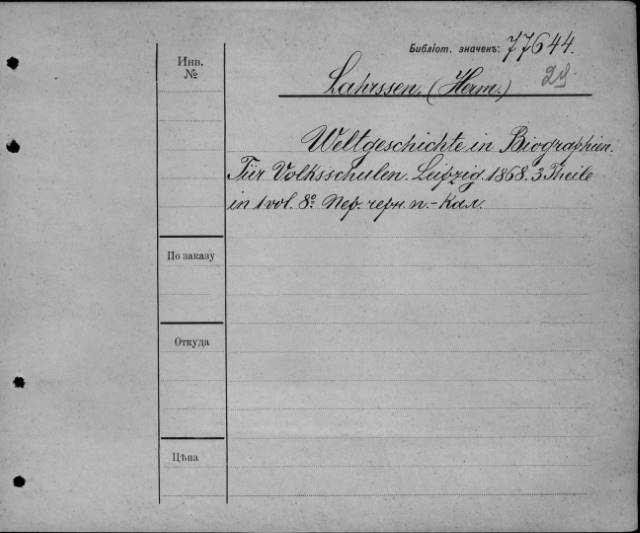 Библіот. значекъ: 77644.
Инв.
№
Lahrssen. (Herm.)
Weltgeschichte in Biographien.
Für Volksschulen. Leipzig. 1868. 3 Theile
in 1 vol. 8º. Пер. черн. п.-Кал.
По заказу
Откуда
Цѣна